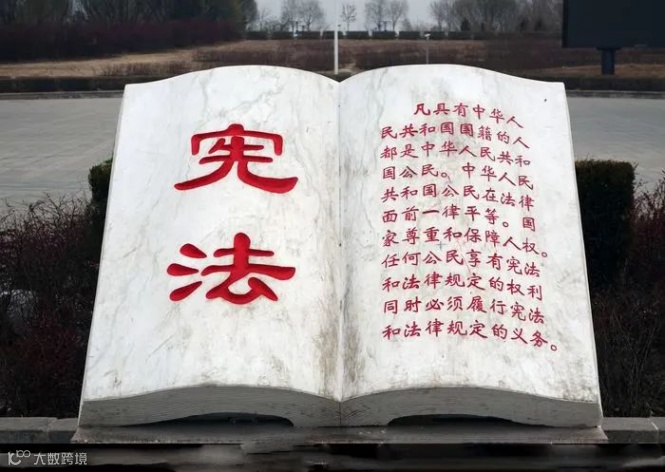 宪
法
凡具有中华人
民共和国国籍的人
都是中华人民共和
国公民。中华人民
共和国公民在法律
面前一律平等。国
家尊重和保障人权。
任何公民享有宪法
和法律规定的权利
同时必须履行宪法
和法律规定的义务。
大数跨境